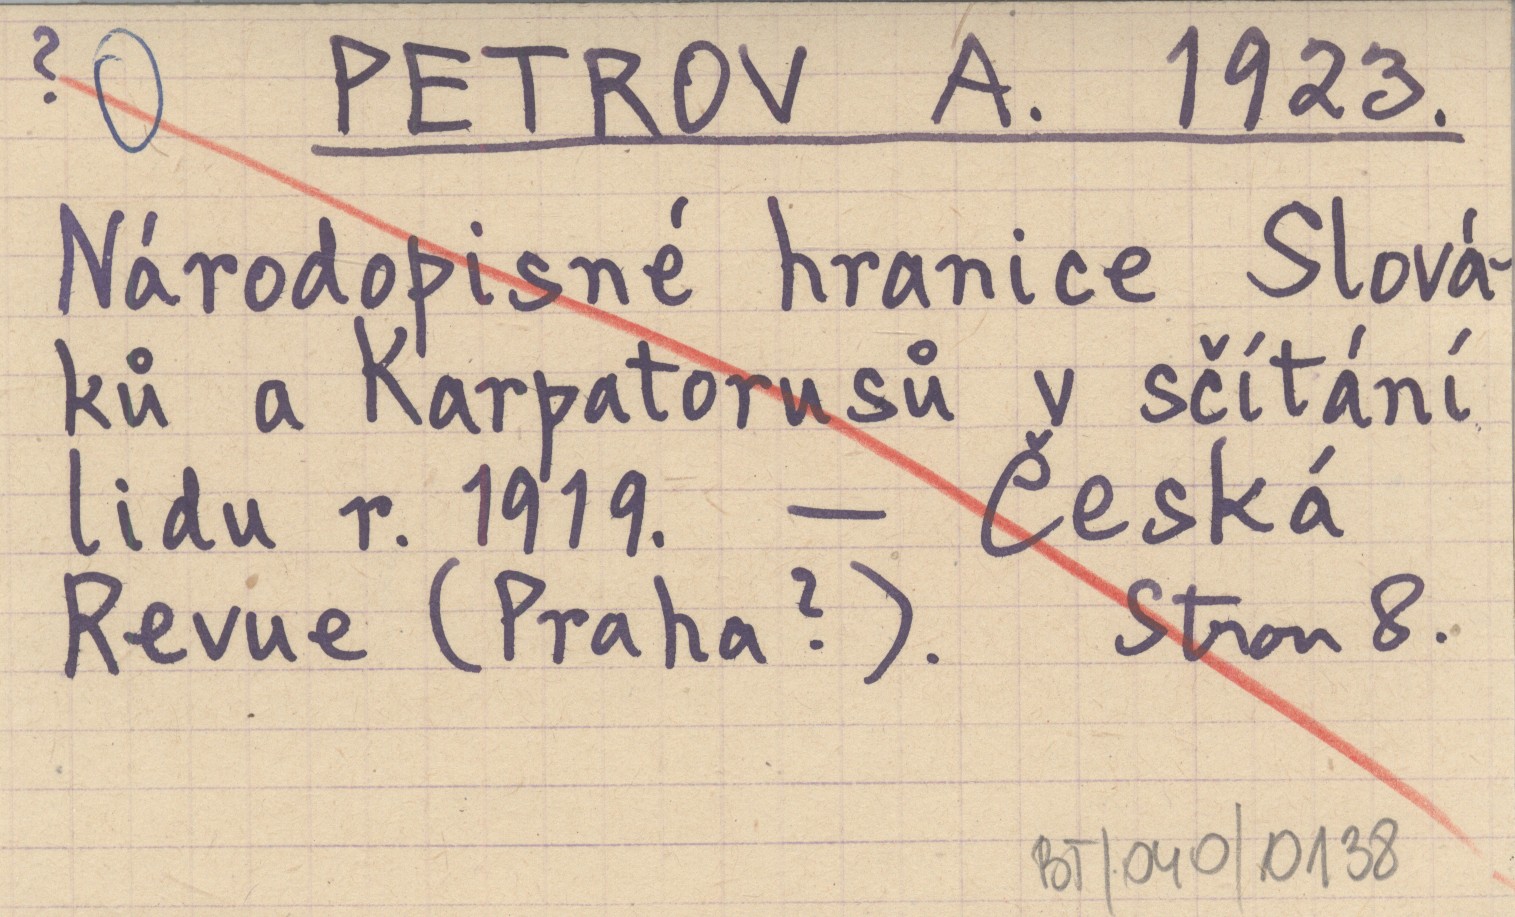 ? O PETROV A. 1923.
Národopisné hranice Slová-
ků a Karpatorusů v sčítání
lidu r. 1919. — Česká
Revue (Praha?). Stron 8.
BT/040/0138